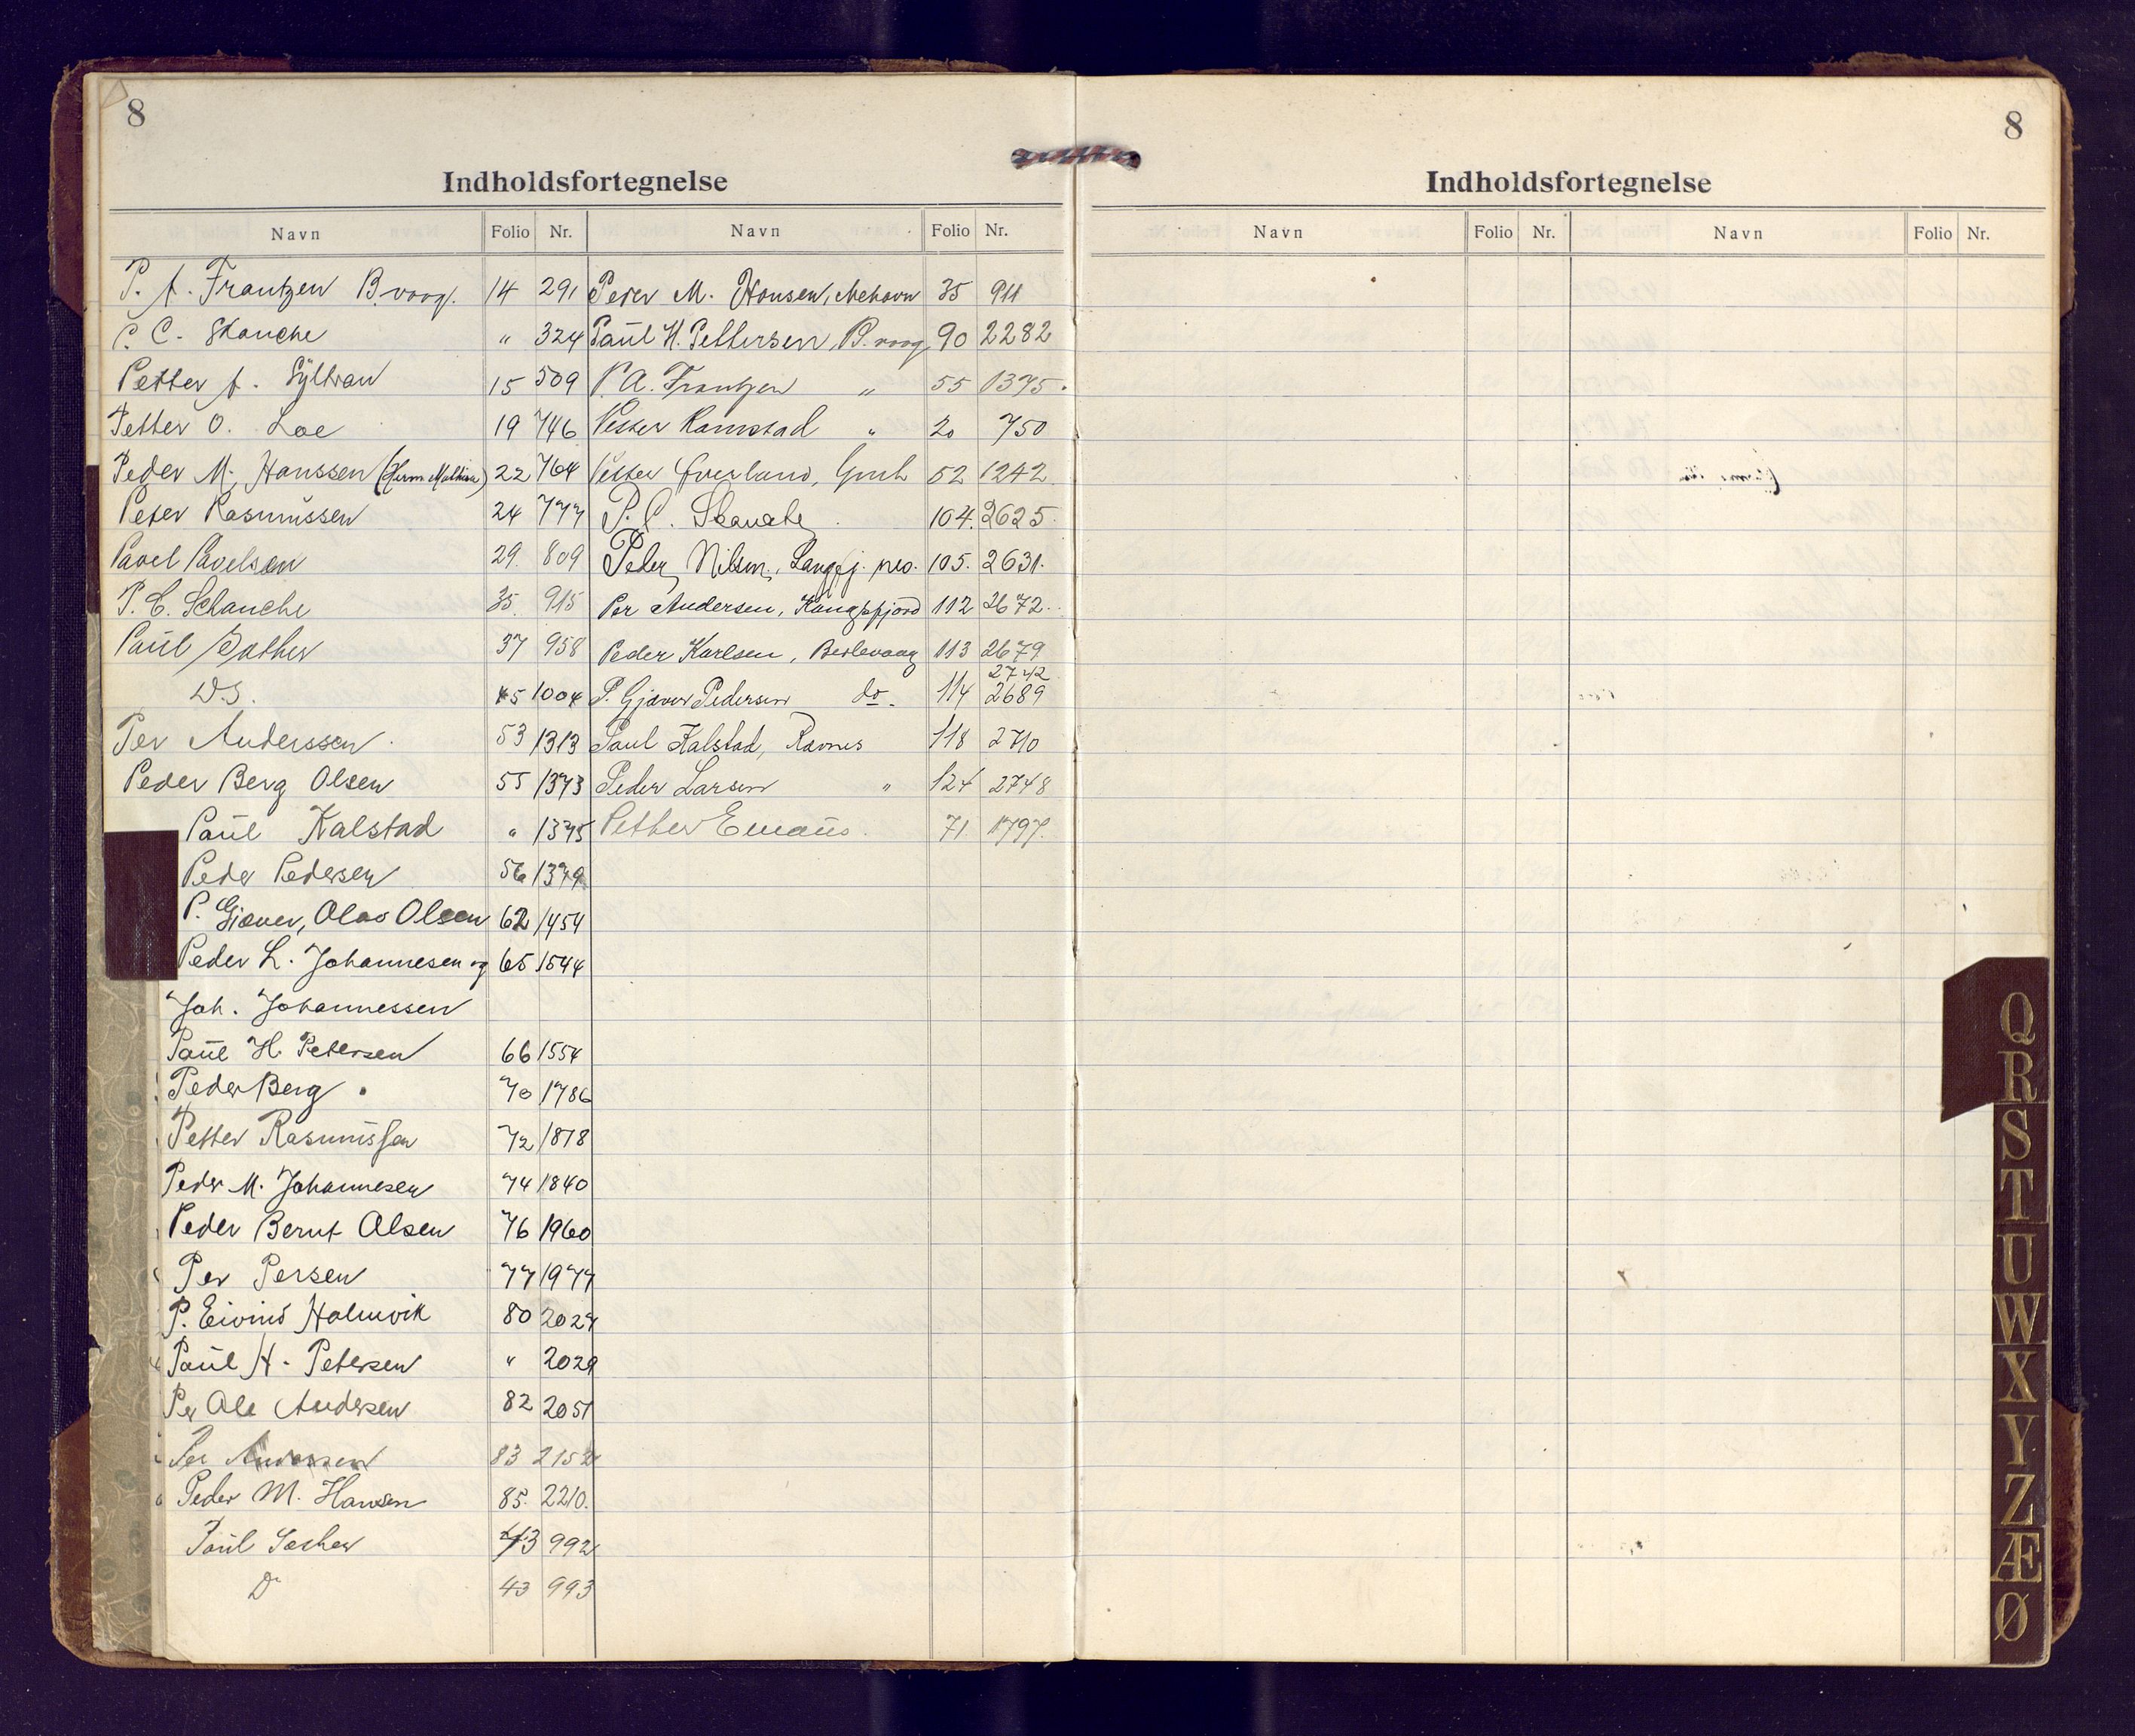 8
Indholdsfortegnelse
Navn Folio Nr. Navn Folio Nr.
P. A. Frantzen B.vaag. 14 291
P. C. Skanche " 324
Petter A. Syltran 15 509
Petter O. Loe 19 746
Peder M. Hanssen (Herm Mathisa) 22 764
Peter Rasmussen 24 777
Pavel Pavelsen 29. 809
P. C. Schanche 35. 915
Paul 37 958
D.S. 45 1004
Per Anderssen. 53 1313
Peder Berg Olsen 55 1373
Paul Kalstad " 1375
Peder Pedersen 56 1379
P. Gjæver, Olav Olsen 62 1454
Peder L. Johannesen og 65 1544
Joh. Johannessen
Paul H. Petersen 66 1554
Peder Berg . 70 1786
Petter Rasmussen 72 1818
Peder M. Johannesen 74 1840
Peder Bernt Olsen 76 1960
Per Persen 77 1977
P. Eivind Holmvik 80 2027
Paul H. Petersen " 2029
Per Ole Andersen 82 2051
Per Anderssen 83 2152
Peder M. Hansen 85. 2210.
Paul 43 992
D 43 993
Peder M. Hansen, Mehavn 35 911
Paul H. Pettersen, B.vaag 90 2282
P. A. Frantzen " 55 1375.
Petter Ramstad " 20 750
Petter Overland, 52 1242
P. C. Skanche 104. 2625.
Peder Nilsen, Langfj. nes. 105. 2631.
Per Andersen, Kongsfjord 112 2672.
Peder Karlsen, Berlevaag 113 2679
2742
P. Gjæver Pedersen do. 114 2689
Paul Kalstad, Ravnes 118 2710
Peder Larsen " 124 2748
Petter Emaus. 71. 1797.
8
Indholdsfortegnelse
Navn Folio Nr. Navn Folio Nr.
Q
R
S
T
U
W
X
Y
Z
Æ
Ø